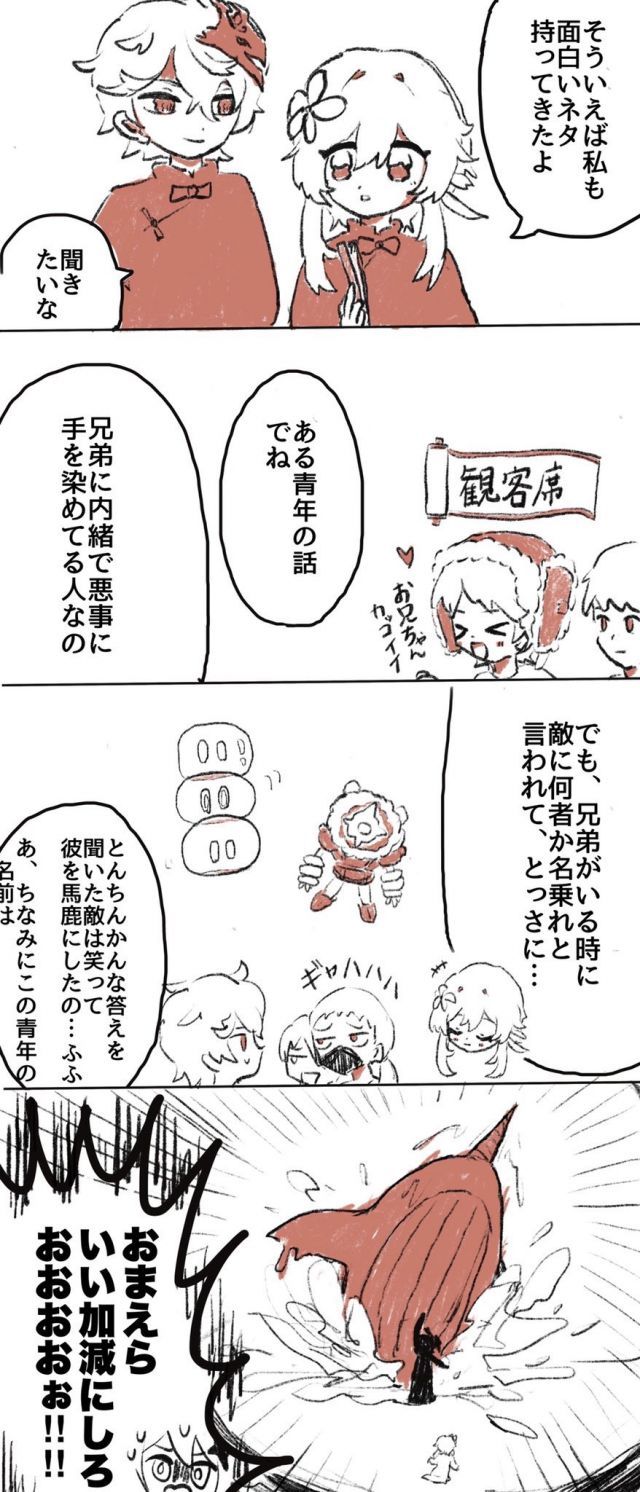 そういえば私も
面白いネタ
持ってきたよ
聞き
たいな
観客席
お兄ちゃん
カッコイイ
ある青年の話
でね
兄弟に内緒で悪事に
手を染めてる人なの
でも、兄弟がいる時に
敵に何者か名乗れと
言われて、とっさに…
ギャハハハ
とんちんかんな答えを
聞いた敵は笑って
彼を馬鹿にしたの…ふふ
あ、ちなみにこの青年の
名前は
おまえら
いい加減にしろ
おおおおぉ!!!!